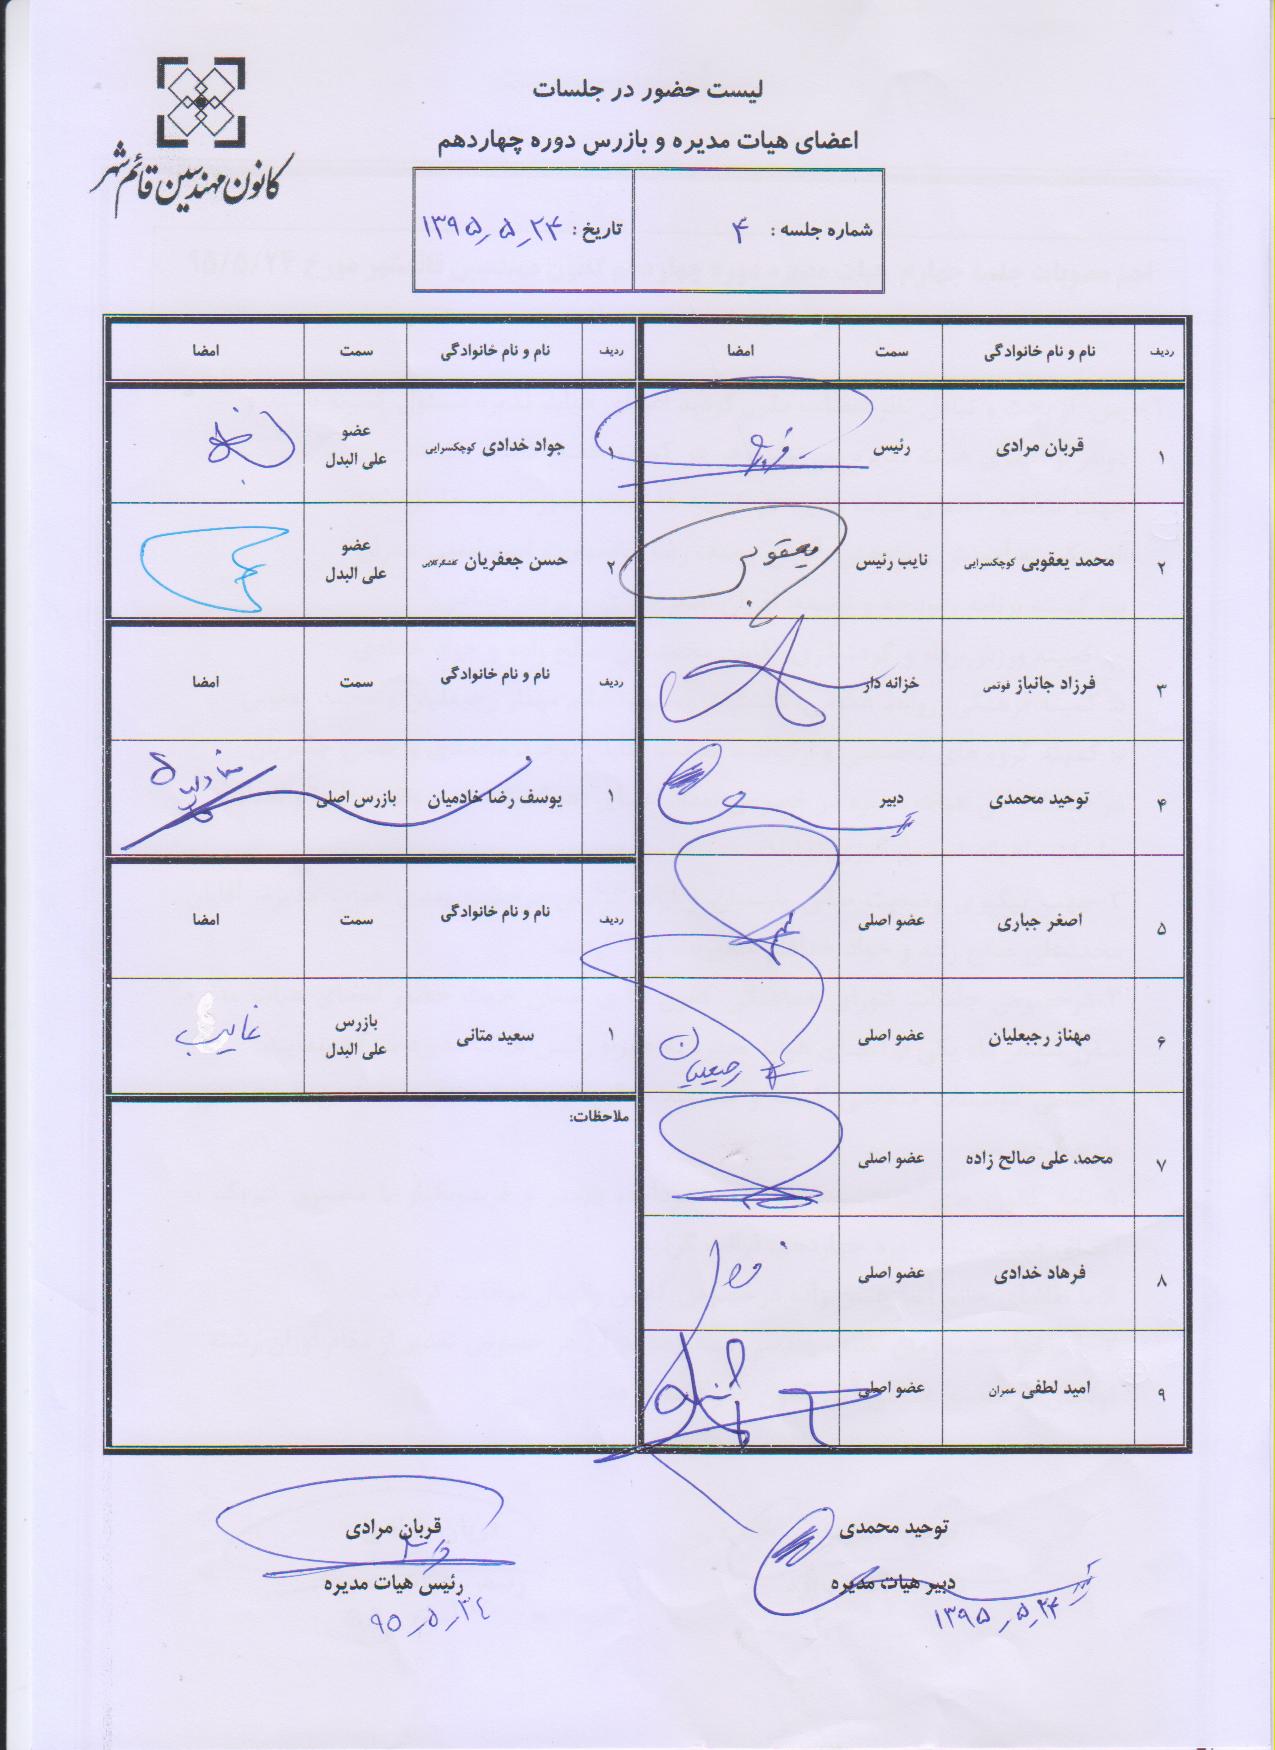 کانون مهندسین قائم شهر
لیست حضور در جلسات
اعضای هیات مدیره و بازرس دوره چهاردهم
شماره جلسه : ۴
تاریخ : ۱۳۹۵٫۵٫۲۴
ردیف نام و نام خانوادگی سمت امضا
۱ قربان مرادی رئیس
۲ محمد یعقوبی کوچکسرایی نایب رئیس یعقوبی
۳ فرزاد جانباز فوتمی خزانه دار
۴ توحید محمدی دبیر
۵ اصغر جباری عضو اصلی
۶ مهناز رجبعلیان عضو اصلی رجبعلیان
۷ محمد علی صالح زاده عضو اصلی
۸ فرهاد خدادی عضو اصلی
۹ امید لطفی عمران عضو اصلی
ردیف نام و نام خانوادگی سمت امضا
۱ جواد خدادی کوچکسرایی عضو
علی البدل
۲ حسن جعفریان کفشگرکلایی عضو
علی البدل
ردیف نام و نام خانوادگی سمت امضا
۱ یوسف رضا خادمیان بازرس اصلی
ردیف نام و نام خانوادگی سمت امضا
۱ سعید متانی بازرس
علی البدل غایب
ملاحظات:
توحید محمدی
دبیر هیات مدیره
۱۳۹۵٫۵٫۲۴
قربان مرادی
رئیس هیات مدیره
۹۵٫۵٫۲۴